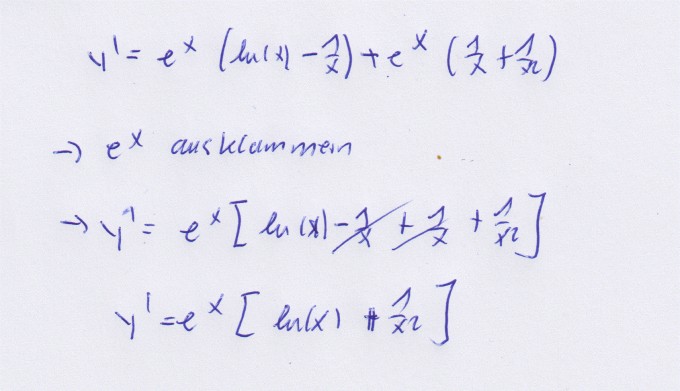 y' = e^x (ln(x) - 1/x) + e^x (1/x + 1/x²)
→ e^x ausklammern
→ y' = e^x [ ln(x) - 1/x + 1/x + 1/x² ]
y' = e^x [ ln(x) + 1/x² ]